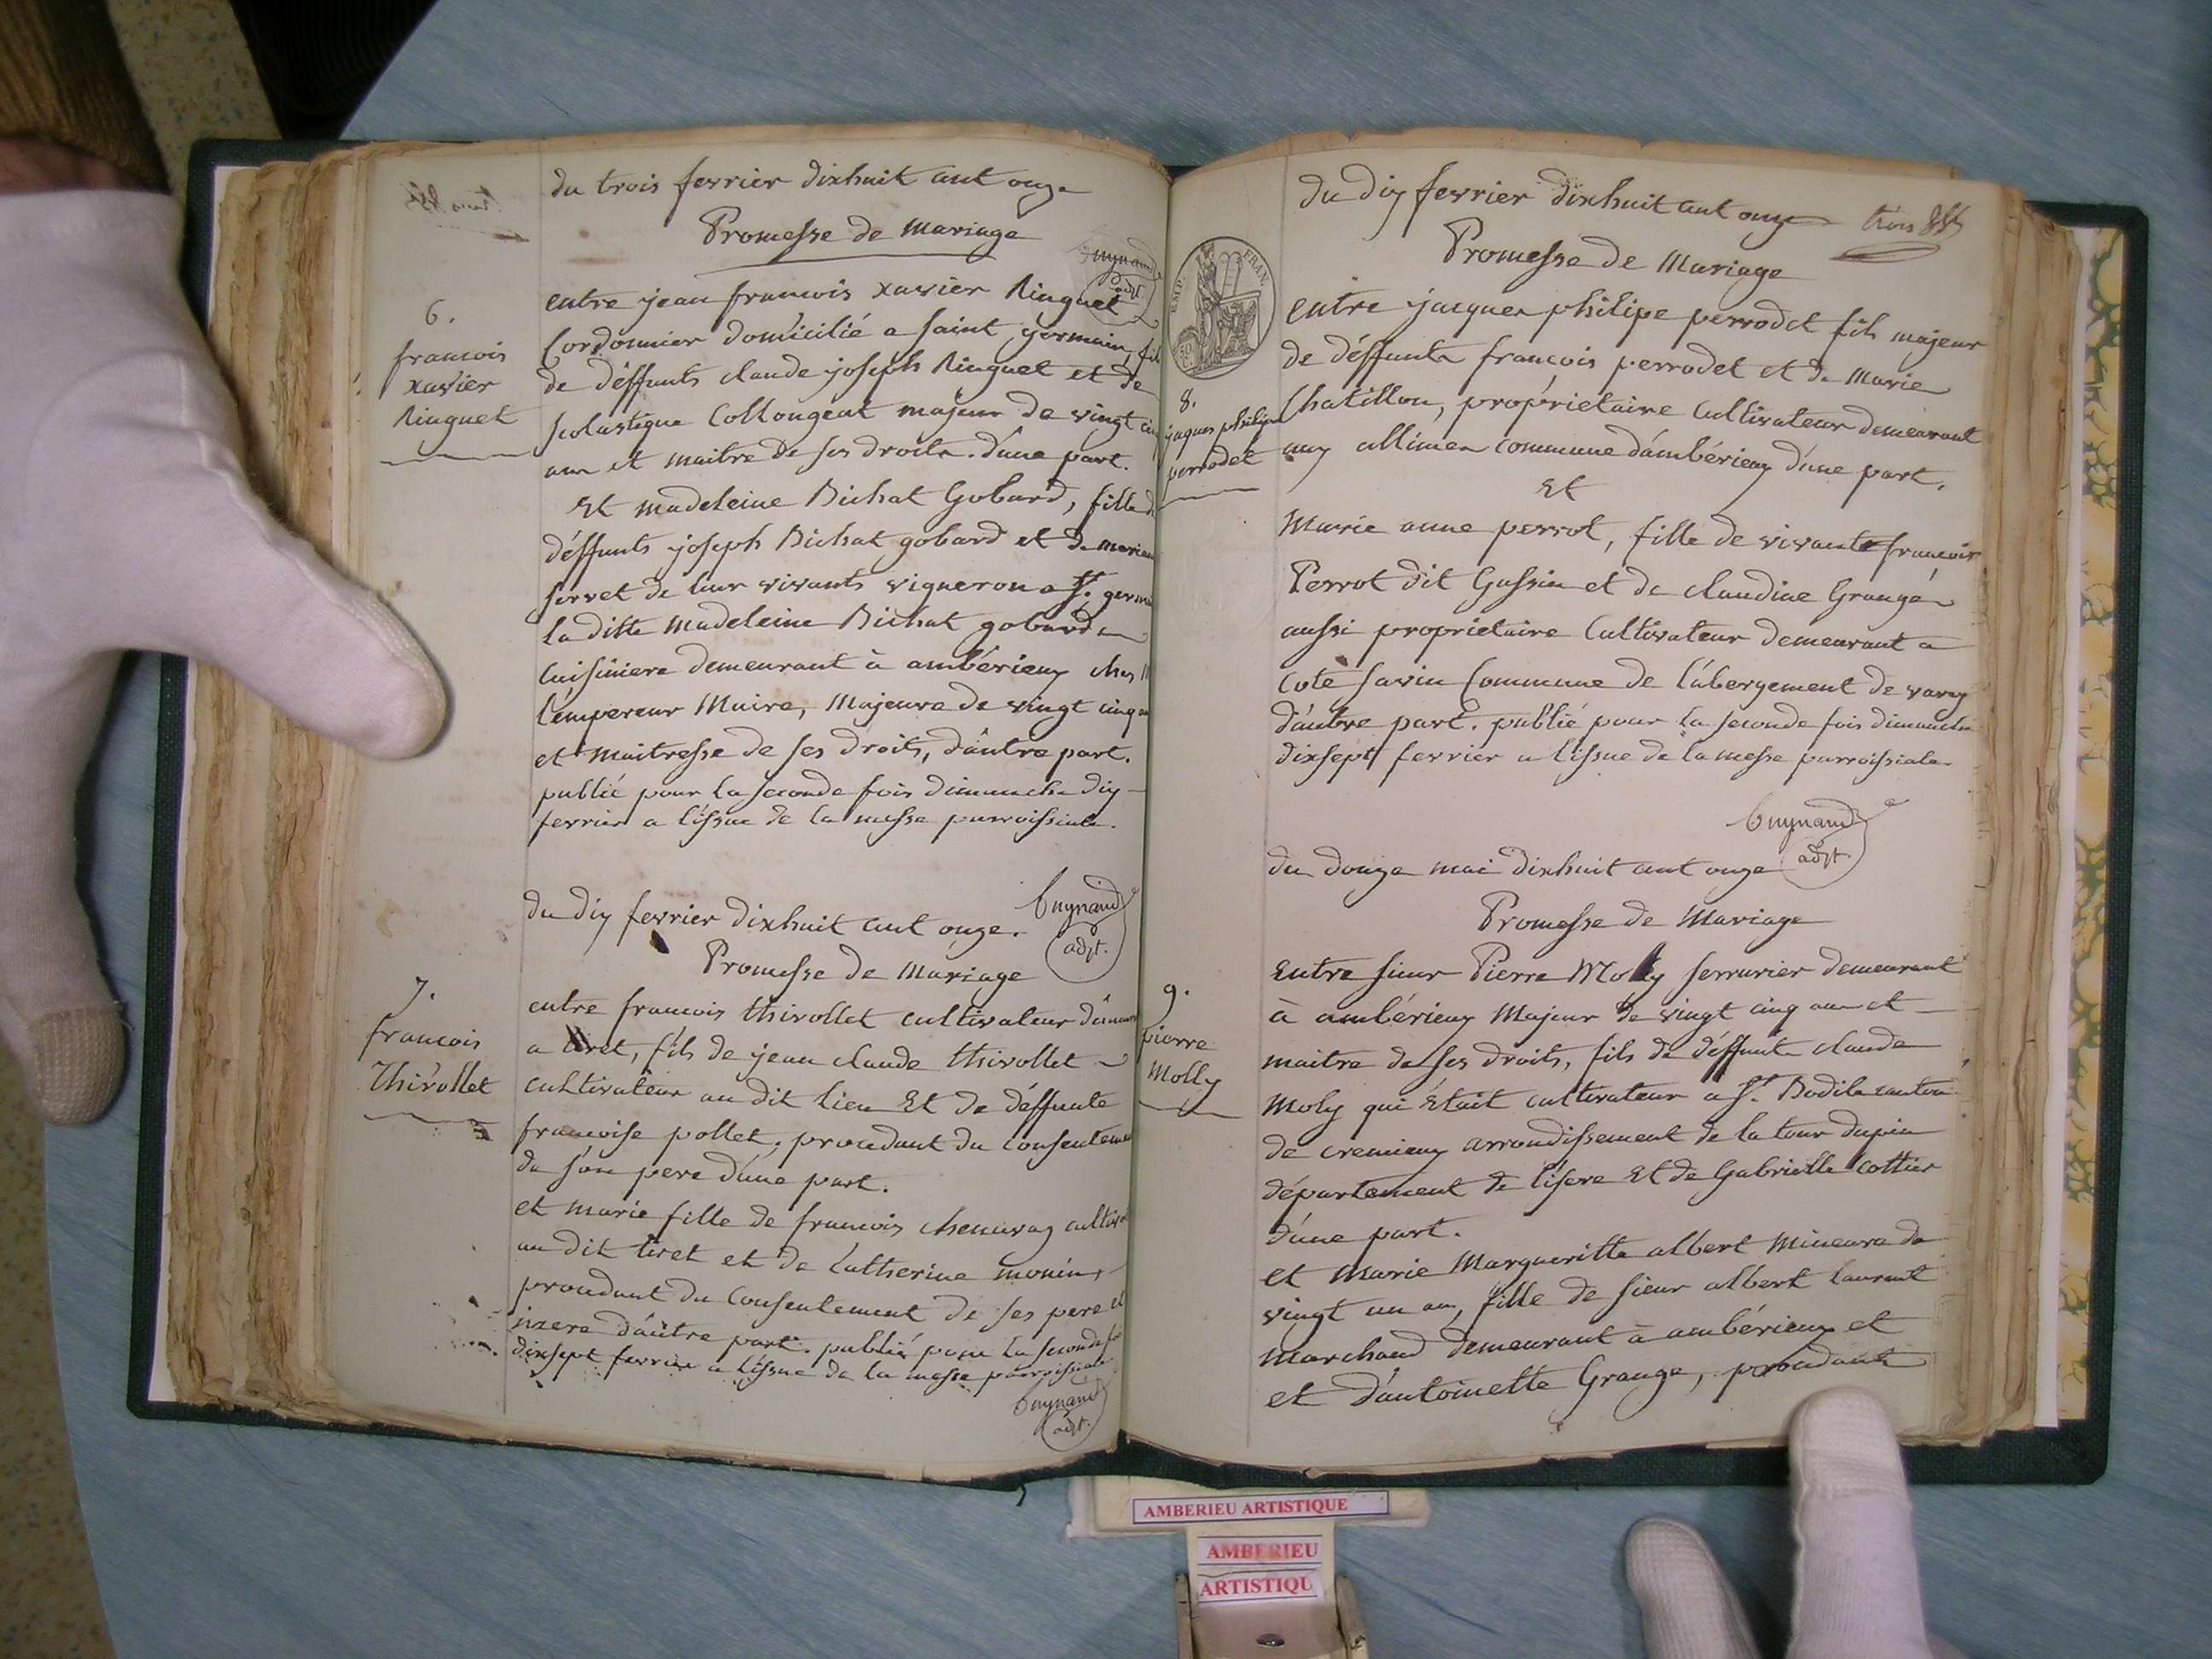 du trois fevrier dixhuit cent onze
Promesse de mariage
Guynand
adjt
6.
francois
xavier
Ringuet
entre jean francois xavier Ringuet
Cordonnier domicilié a saint germain, fil
de déffunts claude joseph Ringuet et de
scolastique Collongeat majeur de vingt cin
ans et maitre de ses droits. d'une part.
Et madeleine Bichat Gobard, fille d
déffunts joseph Bichat gobard et de
servet de leur vivants vigneron a St. germ
la ditte madeleine Bichat gobard
Cuisiniere demeurant à ambérieux chez
l'empereur Maire, Majeure de vingt cinq
et maitresse de ses droits, d'autre part.
publié pour la seconde fois dimanche dix
fevrier a l'issue de la messe parroissiale.
Guynand
adjt.
du dix fevrier dixhuit cent onze.
Promesse de mariage
7.
francois
Thivollet
entre francois thivollet cultivateur
a tiret, fils de jean claude thivollet
cultivateur au dit lieu Et de déffunte
francoise pollet, procedant du consentemen
de son pere d'une part.
et marie fille de francois chenavaz
au dit tiret et de Catherine monin,
procedant du Consentement de ses pere et
mere d'autre part. publié pour la seconde
dixsept fevrier a l'issue de la messe parroissiale
Guynand
adjt.
du dix fevrier dixhuit cent onze
trois
Promesse de Mariage
EMP. FRAN.
8.
jaques philipe
perrodet
entre jacques philipe perrodet fils majeur
de déffunts francois perrodet et de Marie
Chatillon, propriétaire Cultivateur demeurant
aux allimes commune d'ambérieux d'une part.
Et
Marie anne perrot, fille de vivants francois
Perrot dit Gassin et de claudine Granger
aussi propriétaire Cultivateur demeurant a
Cote savin Commune de l'abergement de varey
d'autre part. publié pour la seconde fois dimanche
dixsept fevrier a l'issue de la messe parroissiale
Guynand
adjt.
du douze mai dixhuit cent onze
Promesse de Mariage
9.
pierre
Molly
Entre sieur Pierre Moly serrurier demeurant
à ambérieux Majeur de vingt cinq ans et
maitre de ses droits, fils de déffunts claude
Moly qui était cultivateur a St. Bodile canton
de cremieux arrondissement de la tour dupin
département de l'isere Et de Gabrielle Cottier
d'une part.
et Marie Margueritte albert Mineure de
vingt un ans, fille de sieur albert laurent
Marchand demeurant à ambérieux et
et d'antoinette Grange, procedante
AMBERIEU ARTISTIQUE
AMBERIEU
ARTISTIQU